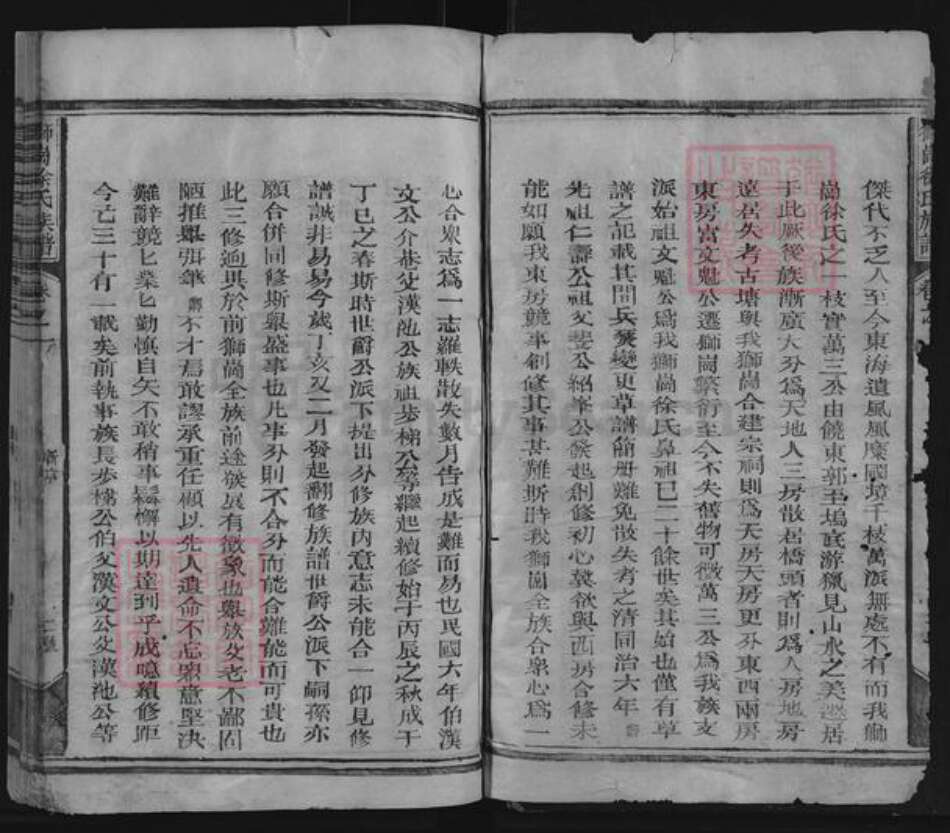 傑代不乏人至今東海遺風風麋國墳千枝萬派無處不有而我獅
崗徐氏之一枝實萬三公由饒東郭至塢底游獵見山水之美遂居
于此厥後族漸廣大分為天地人三房散居橋頭者則為人房地房
遠居失考古塘與我獅崗合建宗祠則為天房天房更分東西兩房
東房富文魁公遷獅崗繁衍至今不失舊物可徵萬三公為我族支
派始祖文魁公為我獅崗徐氏鼻祖已二十餘世矣其始也僅有草
譜之記載其間兵燹變更草譜簡册難免散失考之清同治六年
先祖仁壽公祖父斐公紹峯公發起創修初心冀欲與西房合修未
能如願我東房競事創修其事甚難斯時我獅崗全族合衆心為一
心合衆志為一志羅軼散失數月告成是難而易也民國六年伯漢
文公介巷父漢池公族祖步梯公等繼起續修始于丙辰之秋成于
丁巳之春斯時世爵公派下提出分修族內意志未能合一仰見修
譜誠非易易今歲丁亥又二月發起翻修族譜世爵公派下嗣孫亦
願合併同修斯舉盛事也凡事分則不合分而能合難能而可貴也
此三修迥異於前獅崗全族前途發展有徵象也與族父老不鄙固
陋推舉弭筆 不才焉敢謬承重任顧以先人遺命不忘衆意堅決
難辭競匕業匕勤慎自矢不敢稍事鬆懈以期達到乎成噫續修距
今已三十有一載矣前執事族長步梯公伯父漢文公父漢池公等
獅崗徐氏族譜